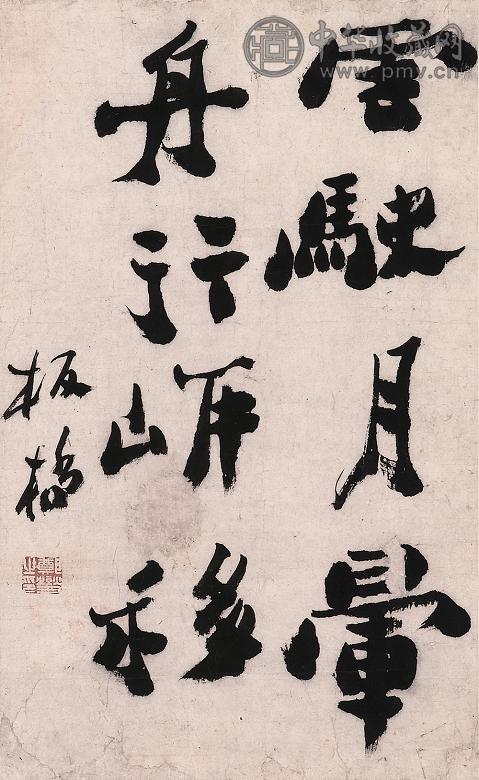 雲駛月暈
舟行岸移
板橋
中华收藏网
www.pmv.cn